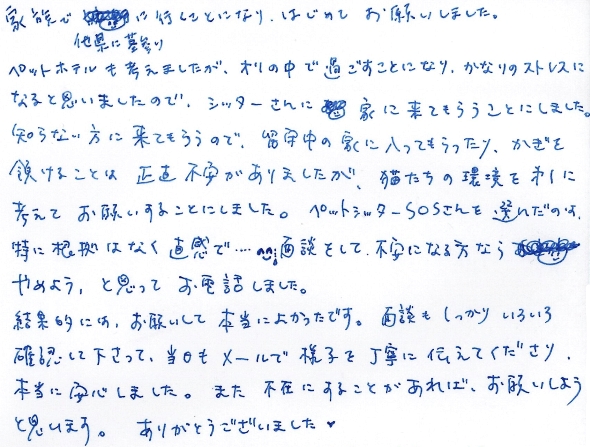 家族で に行くことになり、はじめて お願いしました。
他県に墓参り
ペットホテルも考えましたが、オリの中で過ごすことになり、かなりのストレスに
なると思いましたので、シッターさんに 家に来てもらうことにしました。
知らない方に来てもらうので、留守中の家に入ってもらったり、かぎを
預けることは 正直 不安がありましたが、猫たちの環境を第一に
考えて お願いすることにしました。ペットシッターSOSさんを選んだのは、
特に根拠はなく直感で…. 面談をして、不安になる方なら
やめよう、と思って お電話しました。
結果的には、お願いして本当によかったです。面談もしっかりいろいろ
確認して下さって、当日もメールで様子を丁寧に伝えてくださり、
本当に安心しました。また 不在にすることがあれば、お願いしよう
と思います。ありがとうございました♥